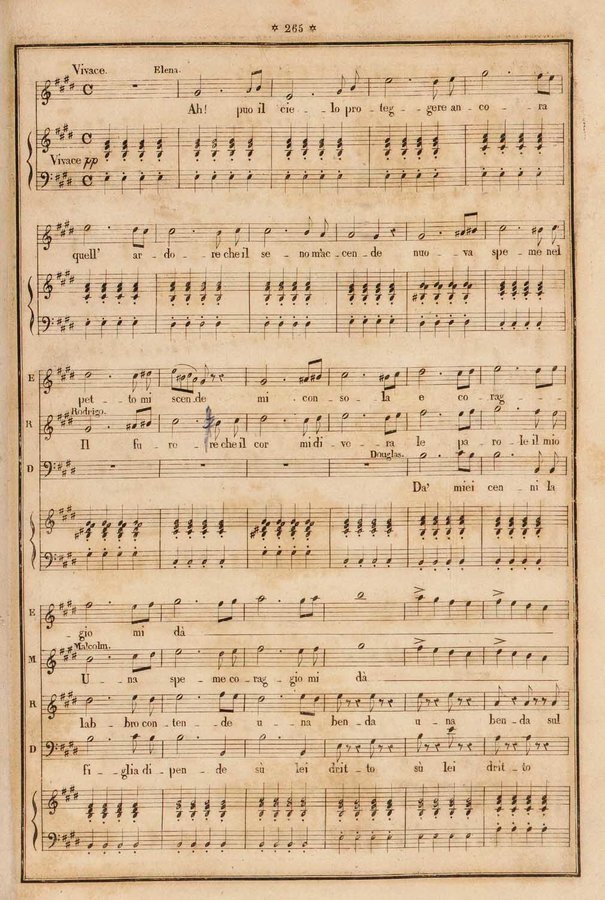 ✡ 265 ✡
Vivace. Elena.
Ah! puo il cie _ lo pro _ teg _ gere an _ co _ ra
Vivace pp
quell' ar _ do _ re che il se _ no m'ac _ cen _ de nuo _ va spe _ me nel
E
pet _ to mi scen _ de mi _ con _ so _ la e co _ rag _
R Rodrigo.
Il fu _ re _ re che il cor mi di _ vo _ ra le pa _ ro _ le il mio
D Douglas.
Da' miei cen _ ni la
E
_ gio mi dà
M Malcolm.
U _ na spe _ me co _ rag _ gio mi dà
R
lab _ bro con _ ten _ de u _ na ben _ da u _ na ben _ da sul
D
fi _ glia di _ pen _ de sù lei drit _ to sù lei drit _ to